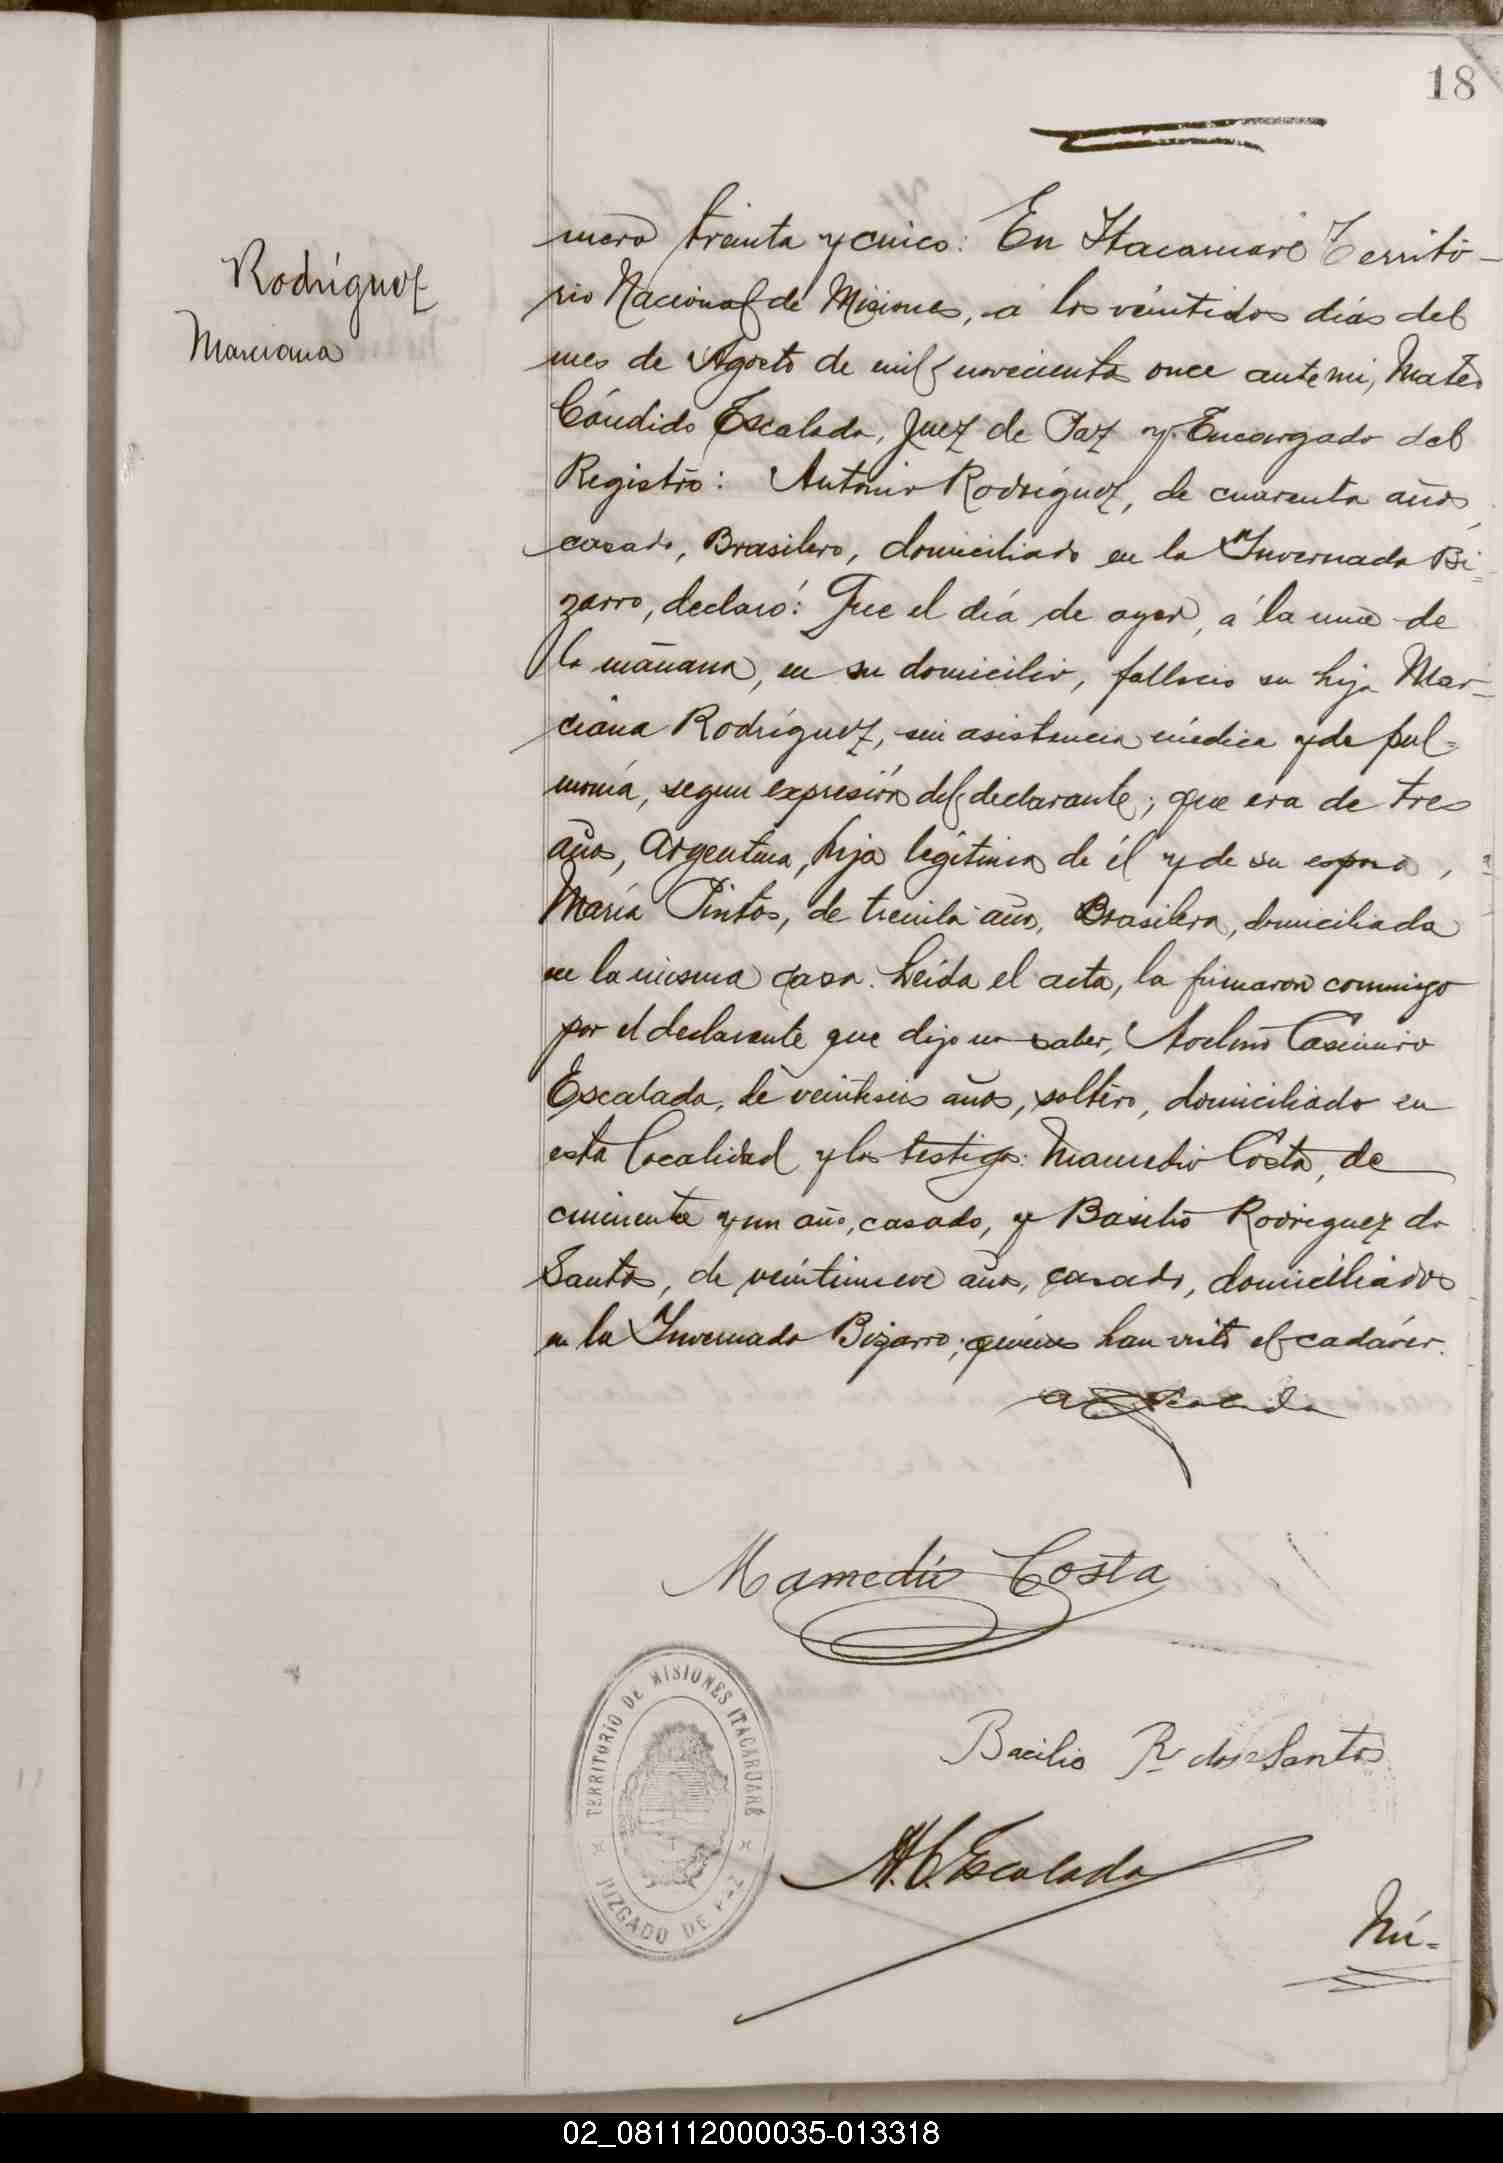 18
Rodríguez
Marciana
mero treinta y cinco: En Itacaruaré Territo-
rio Nacional de Misiones, a los veintidos dias del
mes de Agosto de mil novecientos once ante mi, Mateo
Cándido Escalada, Juez de Paz y Encargado del
Registro: Antonio Rodríguez, de cuarenta años,
casado, Brasilero, domiciliado en la Invernada Bi-
zarro, declaró: Que el día de ayer, á la una de
la mañana, en su domicilio, falleció su hija Mar-
ciana Rodríguez, sin asistencia médica y de pul-
monía, segun expresión del declarante; que era de tres
años, Argentina, hija legítima de él y de su esposa,
María Pintos, de treinta años, Brasilera, domiciliada
en la misma casa. Leida el acta, la firmaron conmigo
por el declarante que dijo no saber, Casimiro
Escalada, de veintiseis años, soltero, domiciliado en
esta localidad y los testigos: Mamedio Costa, de
cincuenta y un años, casado, y Basilio Rodriguez do
Santos, de veintinueve años, casado, domiciliados
en la Invernada Bizarro; quienes han visto el cadáver.
Escalada
Mamedio Costa
TERRITORIO DE MISIONES ITACARUARÉ
JUZGADO DE PAZ
Bacilio R. dos Santos
M. C. Escalada
Nú-
02_081112000035-013318